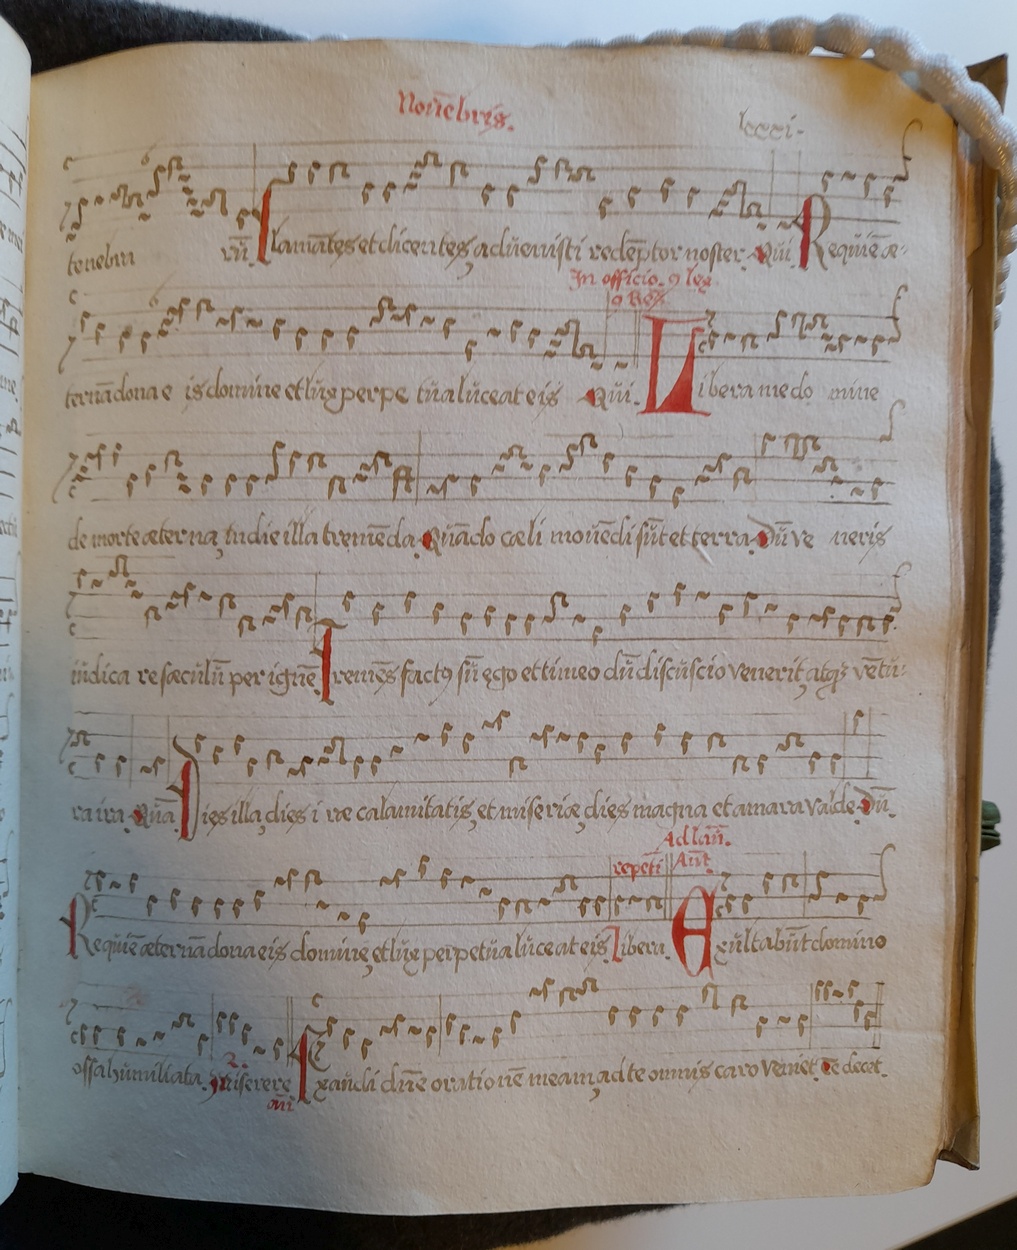 Nouēbris.
lxxxi.
tenebru rū. Clamātes et dicentes, aduenisti redēptor noster. Qui Requiē æ-
In officio. 9 lex
9 Rx.
ternā dona eis domine et lux perpetua luceat eis Qui. Libera me domine
de morte æterna, in die illa tremēda. Quādo cæli mouēdi sūt et terra. Dū veneris
iudicare sæculū per ignē. Tremēs factꝯ sū ego et timeo dū discuscio venerit, atqꝫ ventu-
ra ira. Quā Dies illa, dies iræ calamitatis, et miseriæ, dies magna et amara valde. Dū.
Ad lau.
repeti Ant.
Requiē æternā dona eis domine, et lux perpetua luceat eis. Libera. Exultabūt domino
ossa humiliata. Miserere Exaudi dn̄e orationē meam, ad te omnis caro veniet. Te decet.
2.